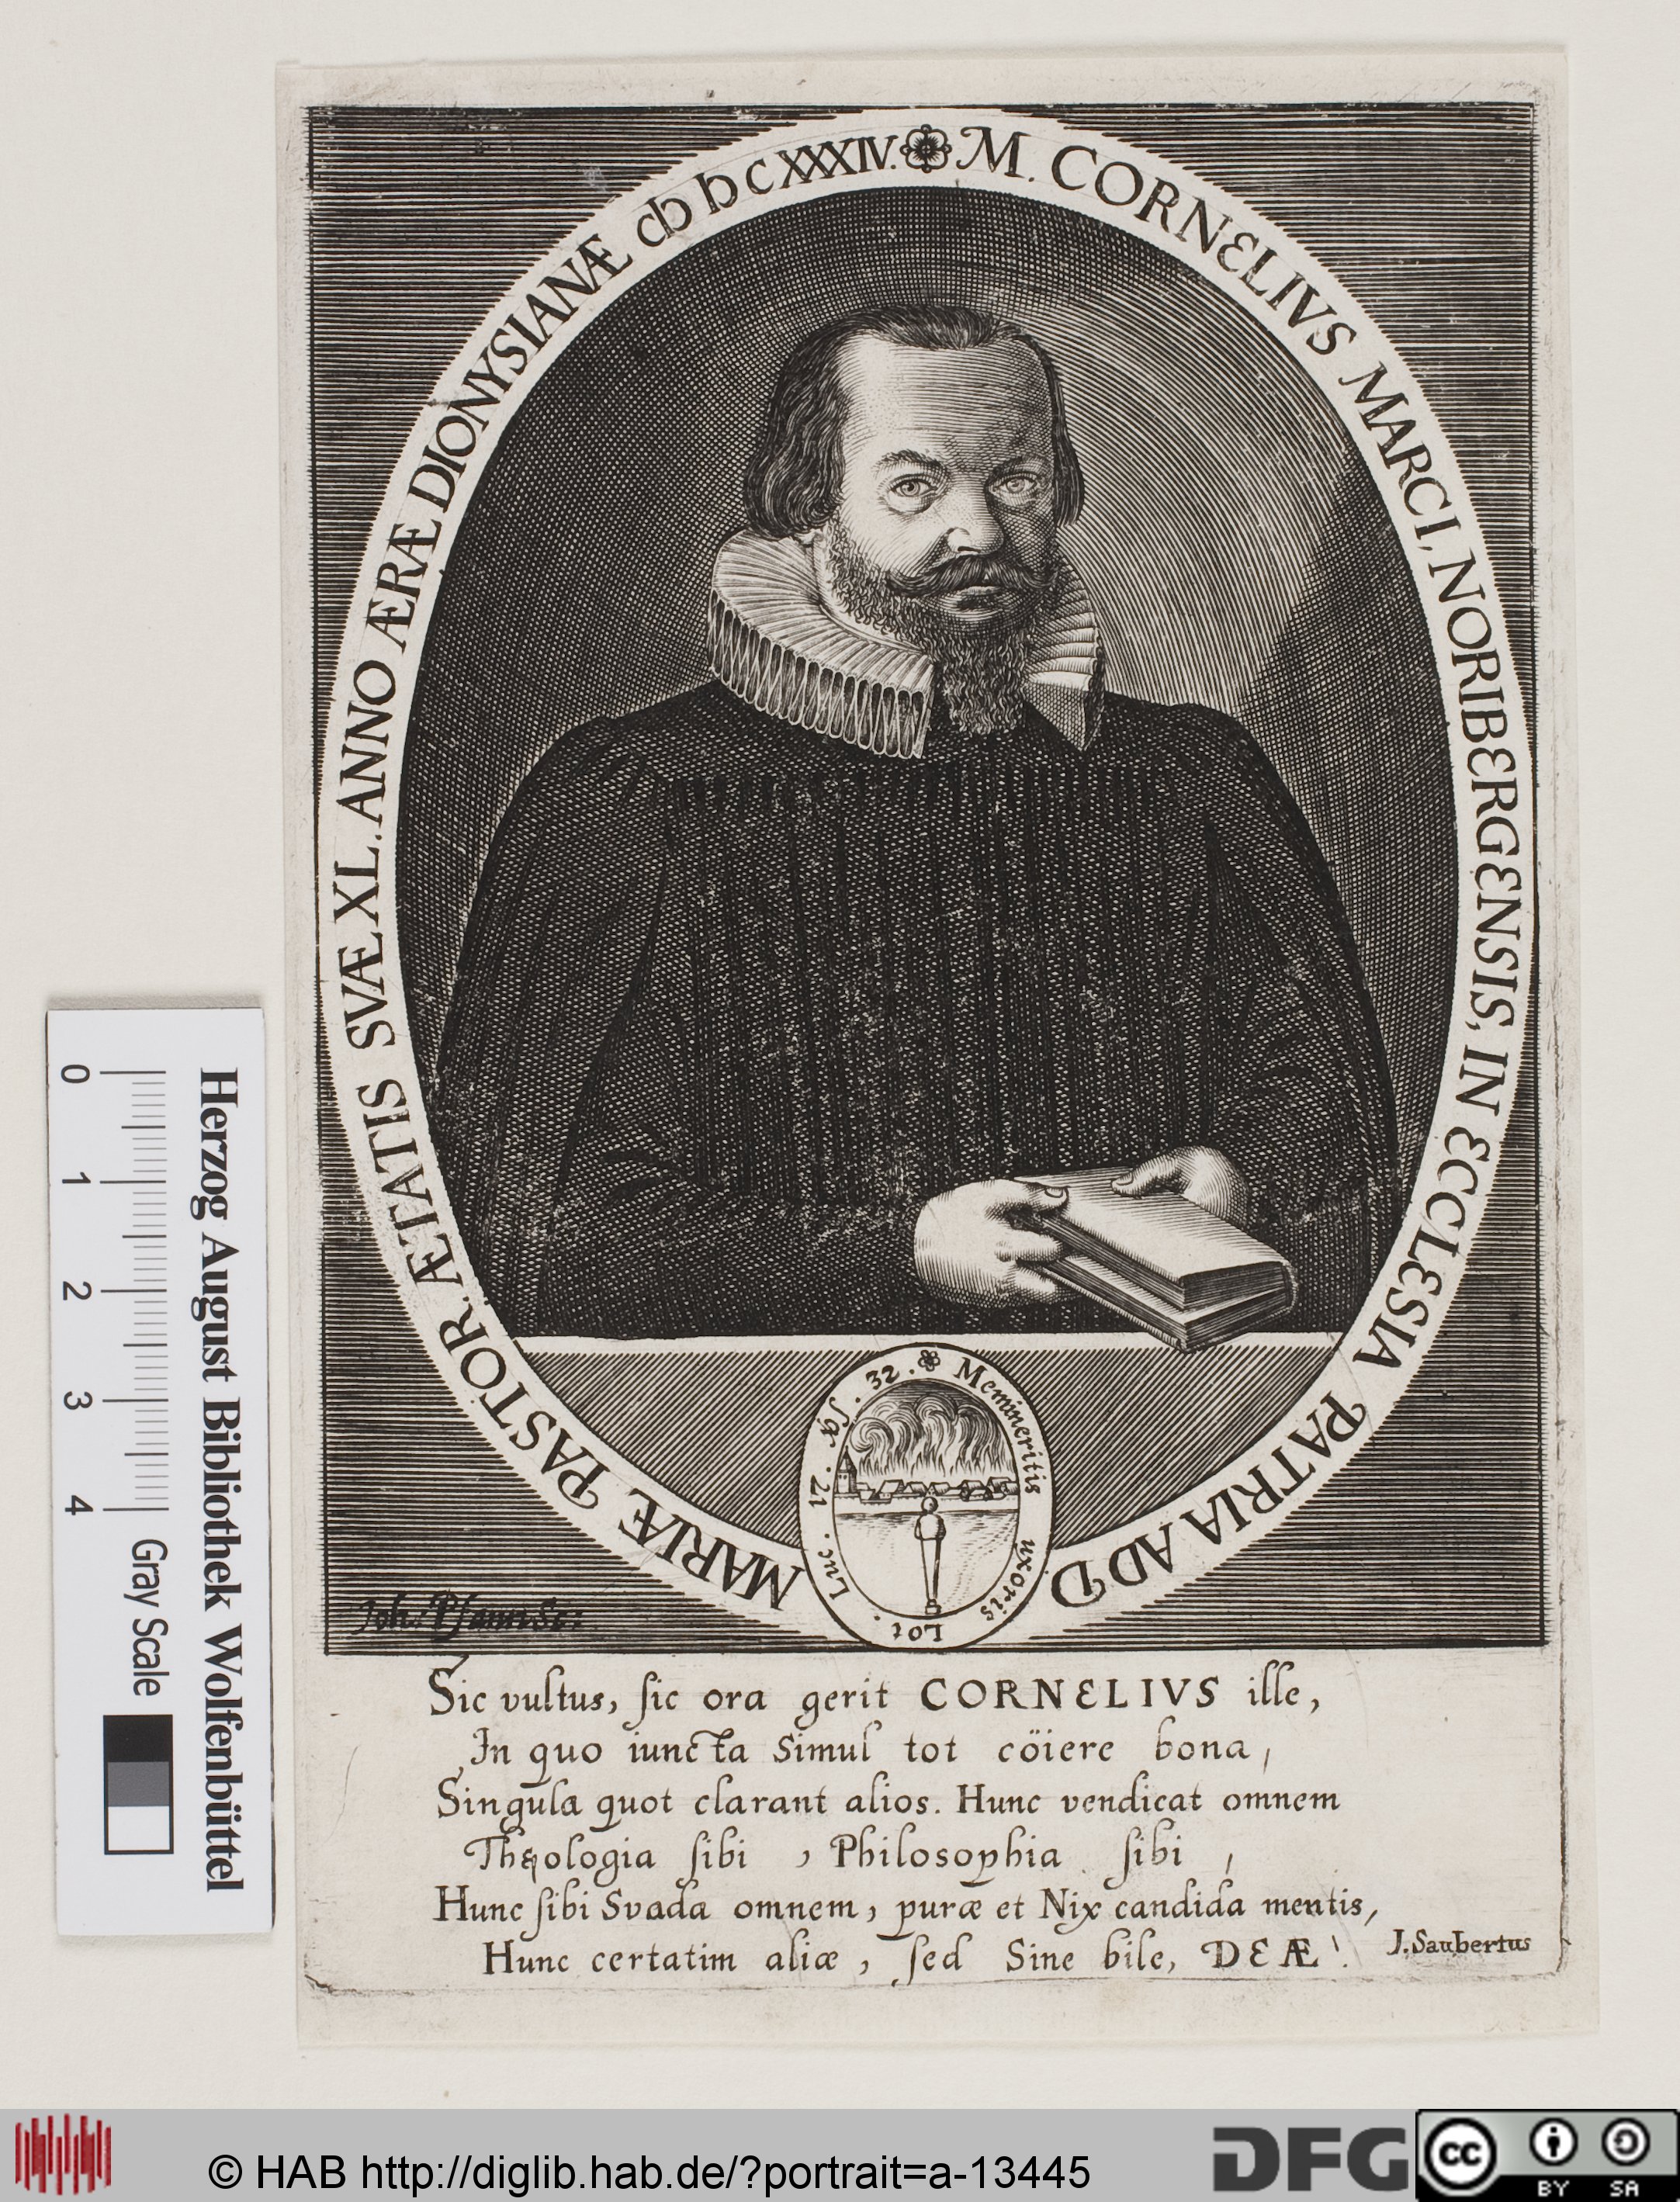 M. CORNELIVS MARCI, NORIBERGENSIS, IN ECCLESIA PATRIA AD D MARIÆ PASTOR. ÆTATIS SVÆ XL. ANNO ÆRÆ DIONYSIANÆ cIↃ IↃC XXXIV.
Memineritis uxoris Lot. Luc. 21. ỹ. 32.
Joh: Pfann Sc:
Sic vultus, ſic ora gerit CORNELIVS ille,
In quo iuncta Simul tot cöiere bona,
Singula quot clarant alios. Hunc vendicat omnem
Theologia ſibi, Philosophia ſibi,
Hunc ſibi Svada omnem, puræ et Nix candida mentis,
Hunc certatim aliæ, ſed Sine bile, DEÆ!
J. Saubertus
Herzog August Bibliothek Wolfenbüttel
0 1 2 3 4 Gray Scale
© HAB http://diglib.hab.de/?portrait=a-13445
DFG
cc BY SA